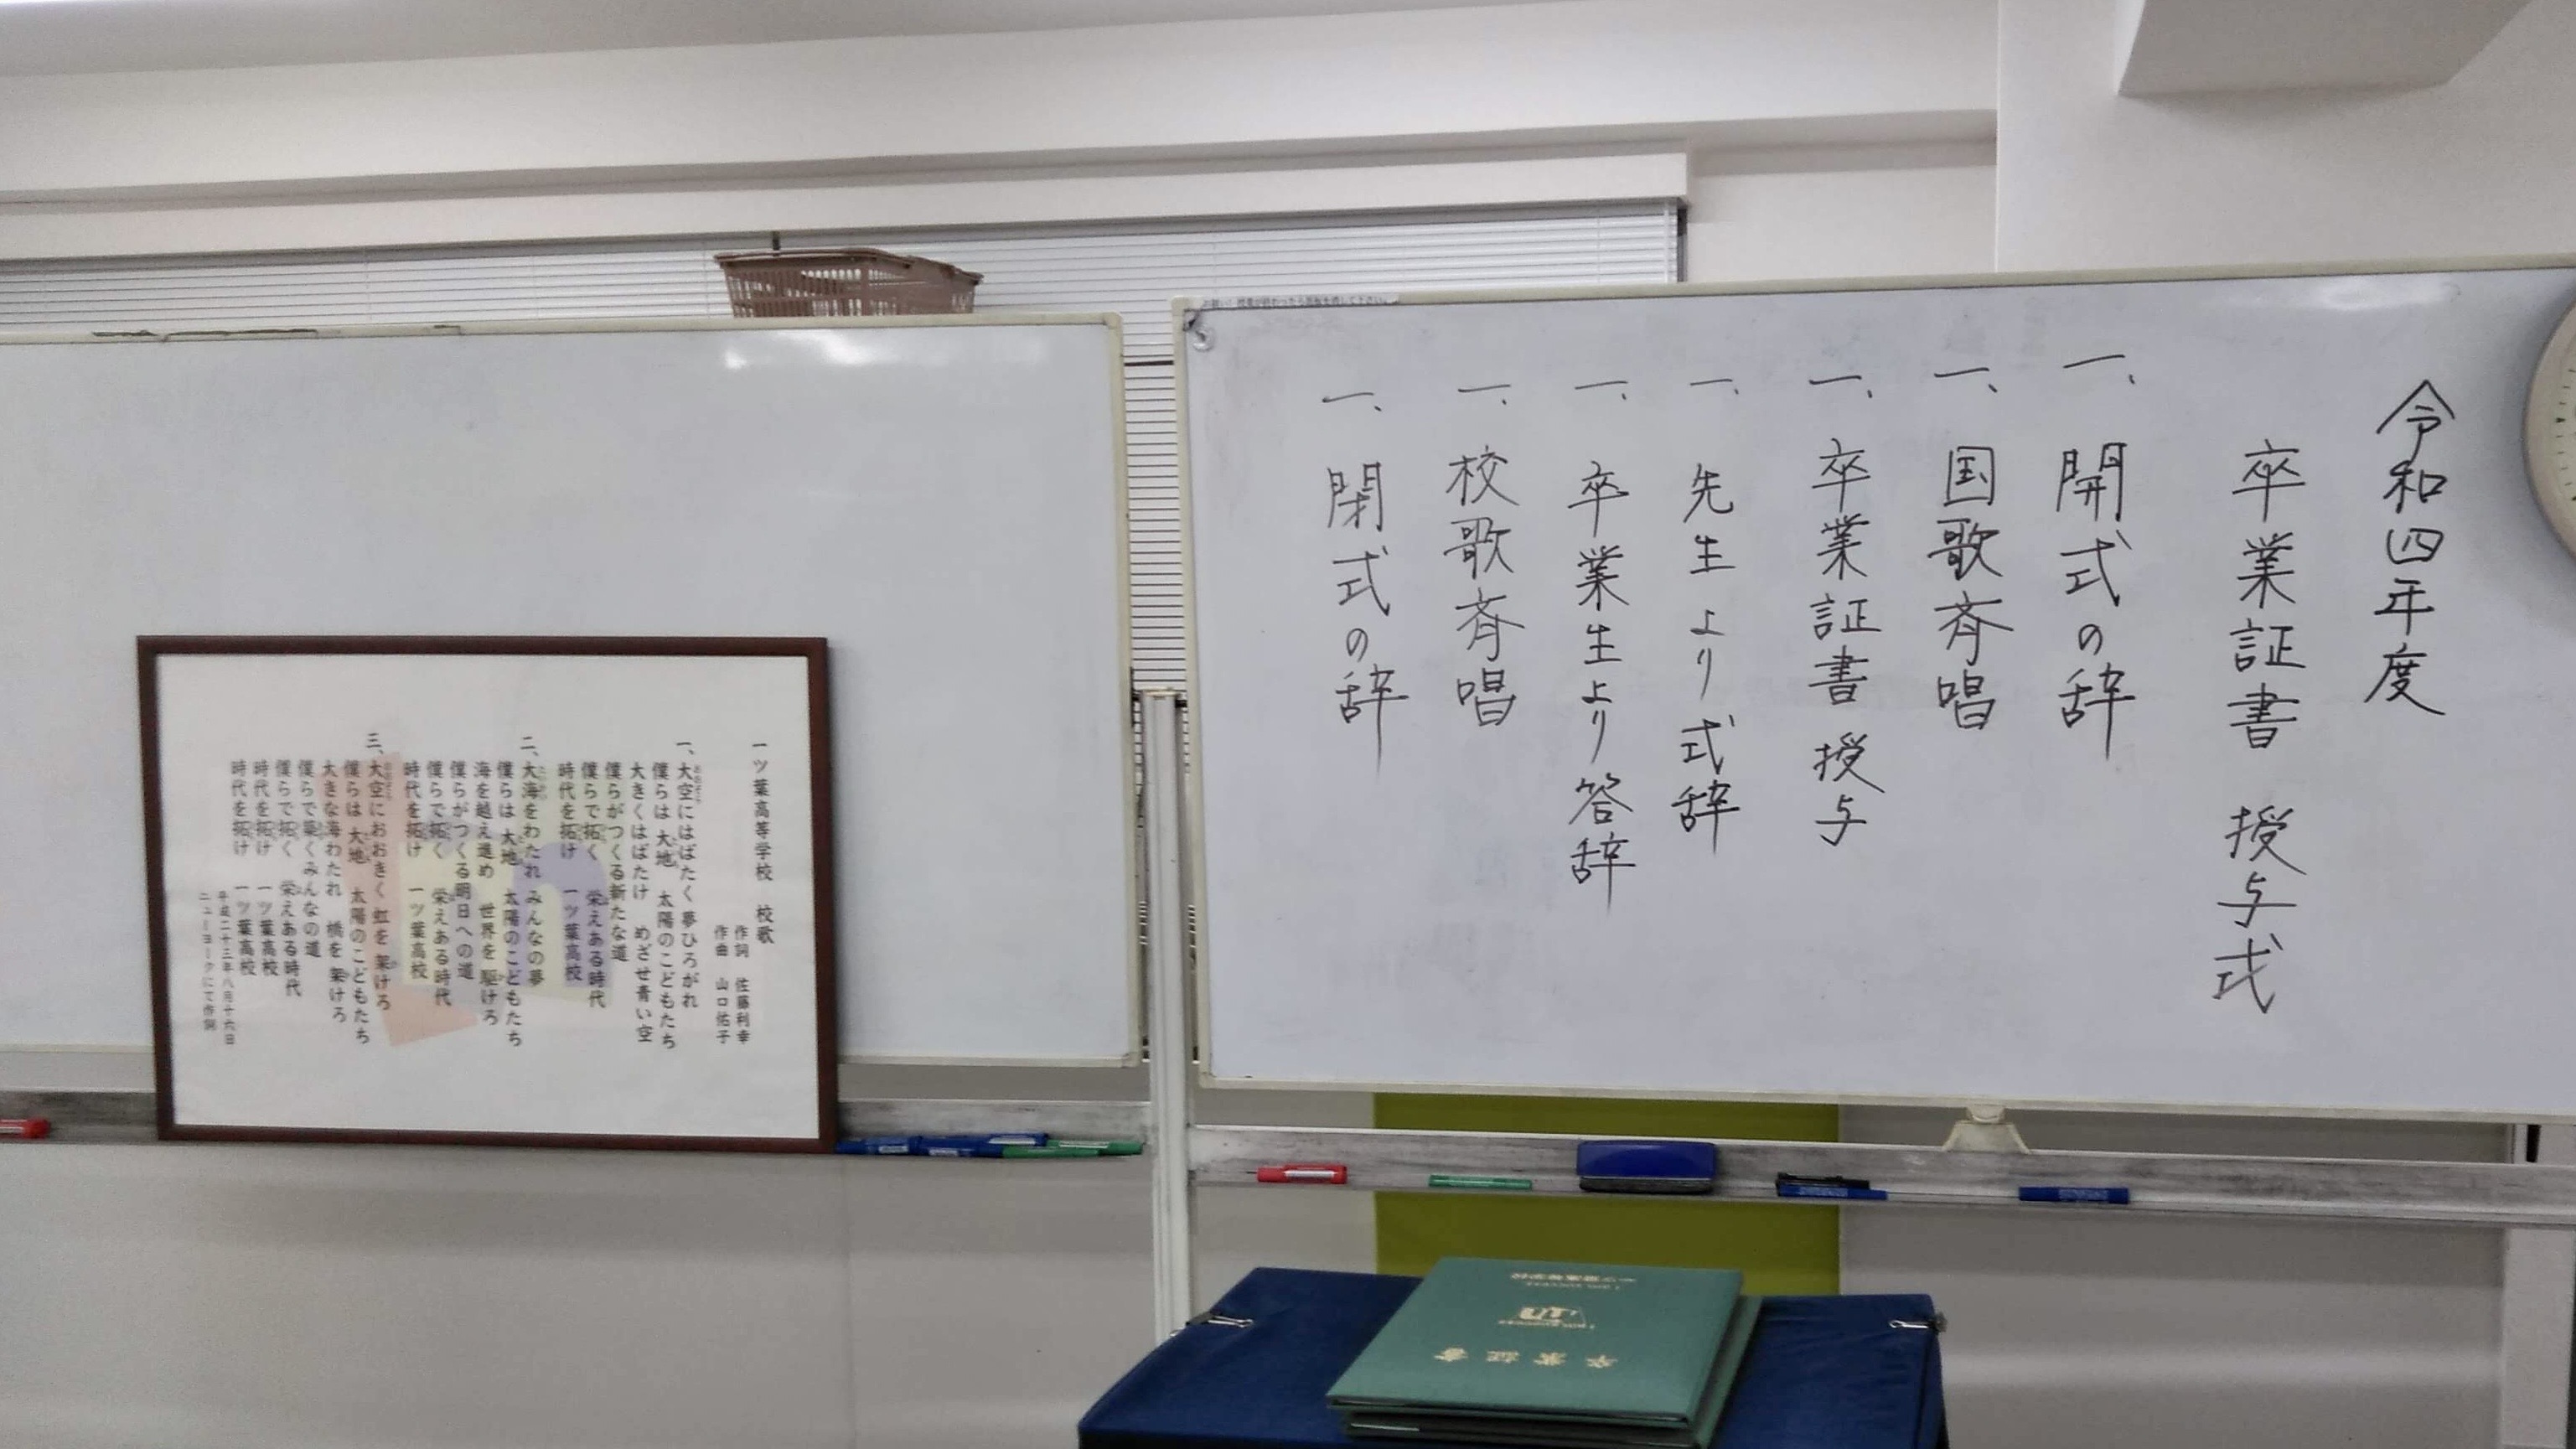 令和四年度
卒業証書 授与式
一、開式の辞
一、国歌斉唱
一、卒業証書 授与
一、先生より式辞
一、卒業生より答辞
一、校歌斉唱
一、閉式の辞
一ツ葉高等学校 校歌
作詞 佐藤利幸
作曲 山口佑子
一、大空にはばたく 夢ひろがれ
僕らは 大地 太陽のこどもたち
大きくはばたけ めざせ青い空
僕らがつくる新たな道
僕らで拓く 栄えある時代
時代を拓け 一ツ葉高校
二、大海をわたれ みんなの夢
僕らは 大地 太陽のこどもたち
海を越え進め 世界を 駆けろ
僕らがつくる明日への道
僕らで拓く 栄えある時代
時代を拓け 一ツ葉高校
三、大空におおきく 虹を 架けろ
僕らは 大地 太陽のこどもたち
大きな海わたれ 橋を 架けろ
僕らで築くみんなの道
僕らで拓く 栄えある時代
時代を拓け 一ツ葉高校
時代を拓け 一ツ葉高校
平成二十三年八月十六日
ニューヨークにて作詞
卒業証書
一ツ葉高等学校